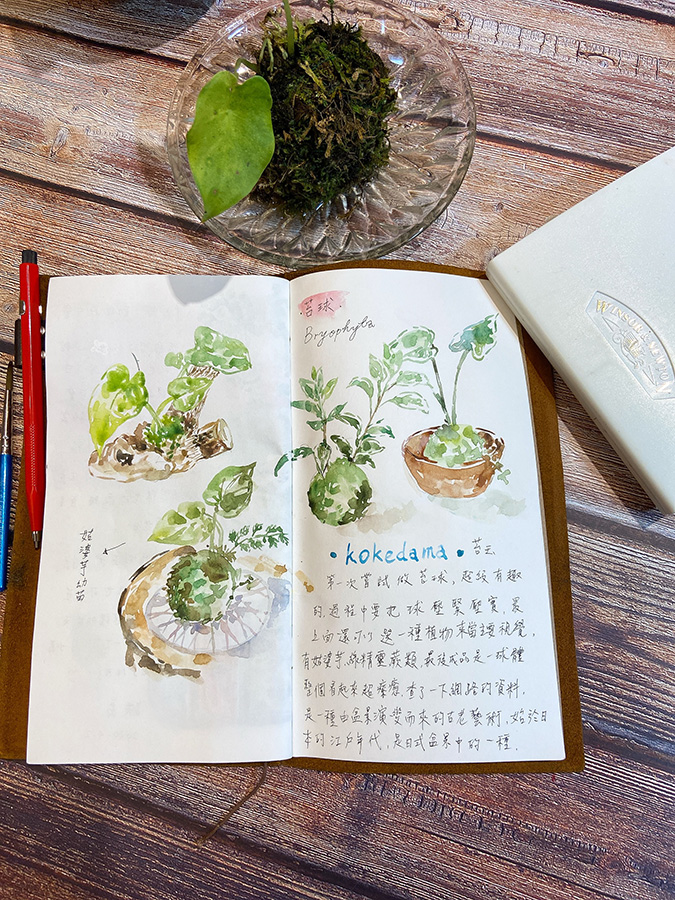 姑婆芋幼苗
·苔球·
Bryophyta
• kokedama • 苔玉
第一次嘗試做苔球，超級有趣
的,過程中要把球壓緊壓實,最
上面還可以選一種植物來當主視覺,
有姑婆芋.綠精靈蕨類,最後成品是一球體
整個看起來超療癒,查了一下網路的資料,
是一種由盆景演變而來的古老藝術,始於日
本的江戶年代,是日式盆景中的一種.
WINSOR & NEWTON